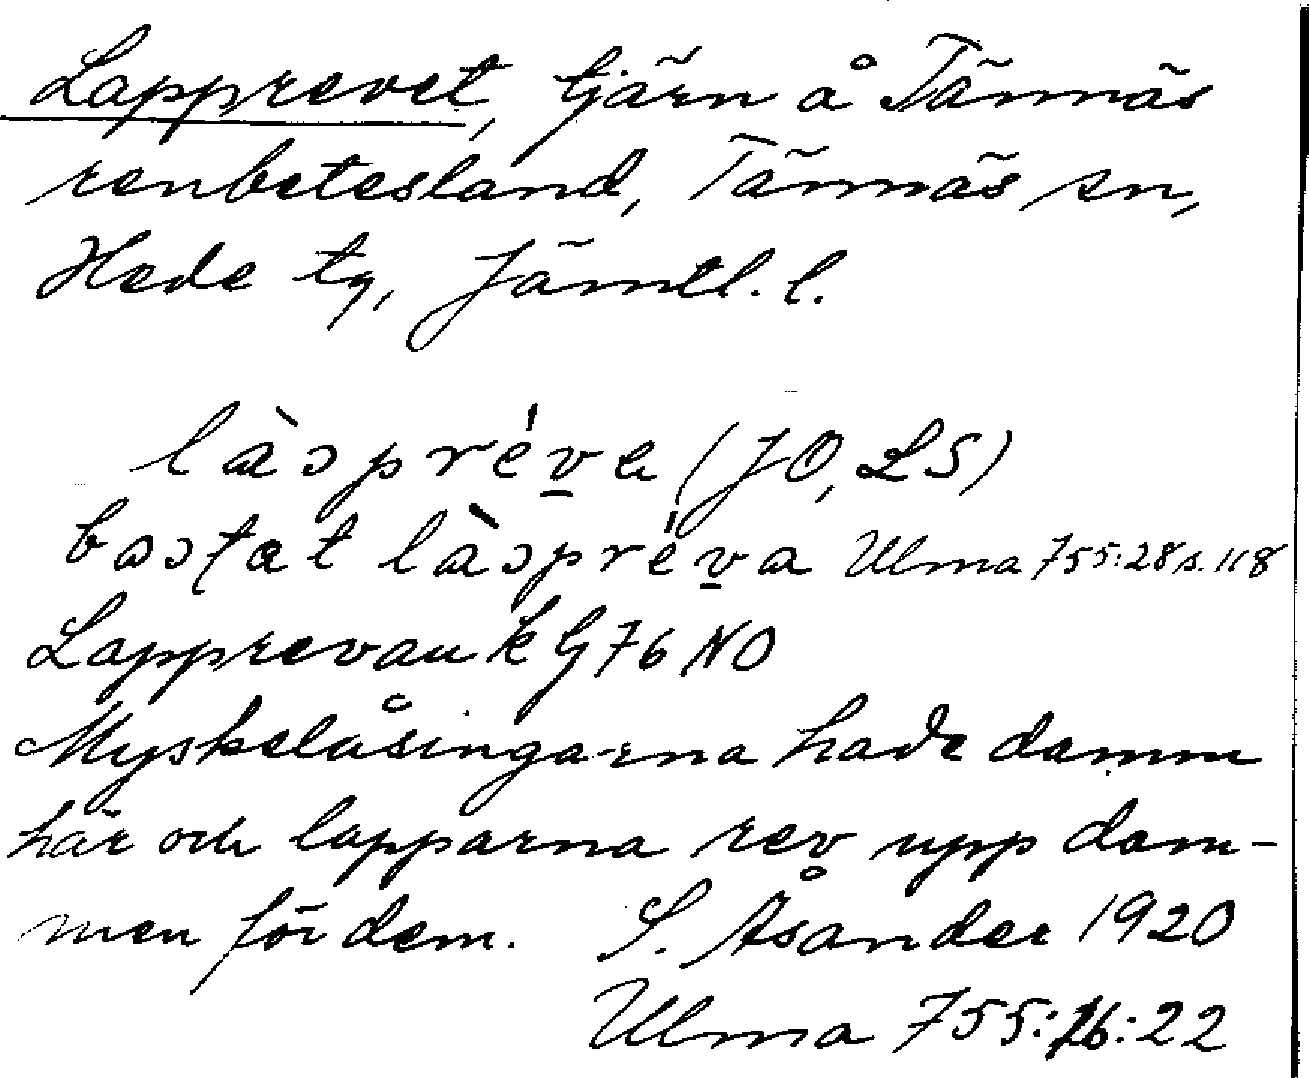 Lapprevet, tjärn å Tännäs
renbetesland, Tännäs sn,
Hede tg, Jämtl. l.
làɔpréve (JO, LS)
làɔpréva Ulma 755:28 s. 118
Lapprevan k G 76 NO
Myskelåsingarna hade damm
här och lapparna rev upp dam-
men för dem. S. Åsander 1920
Ulma 755:16:22